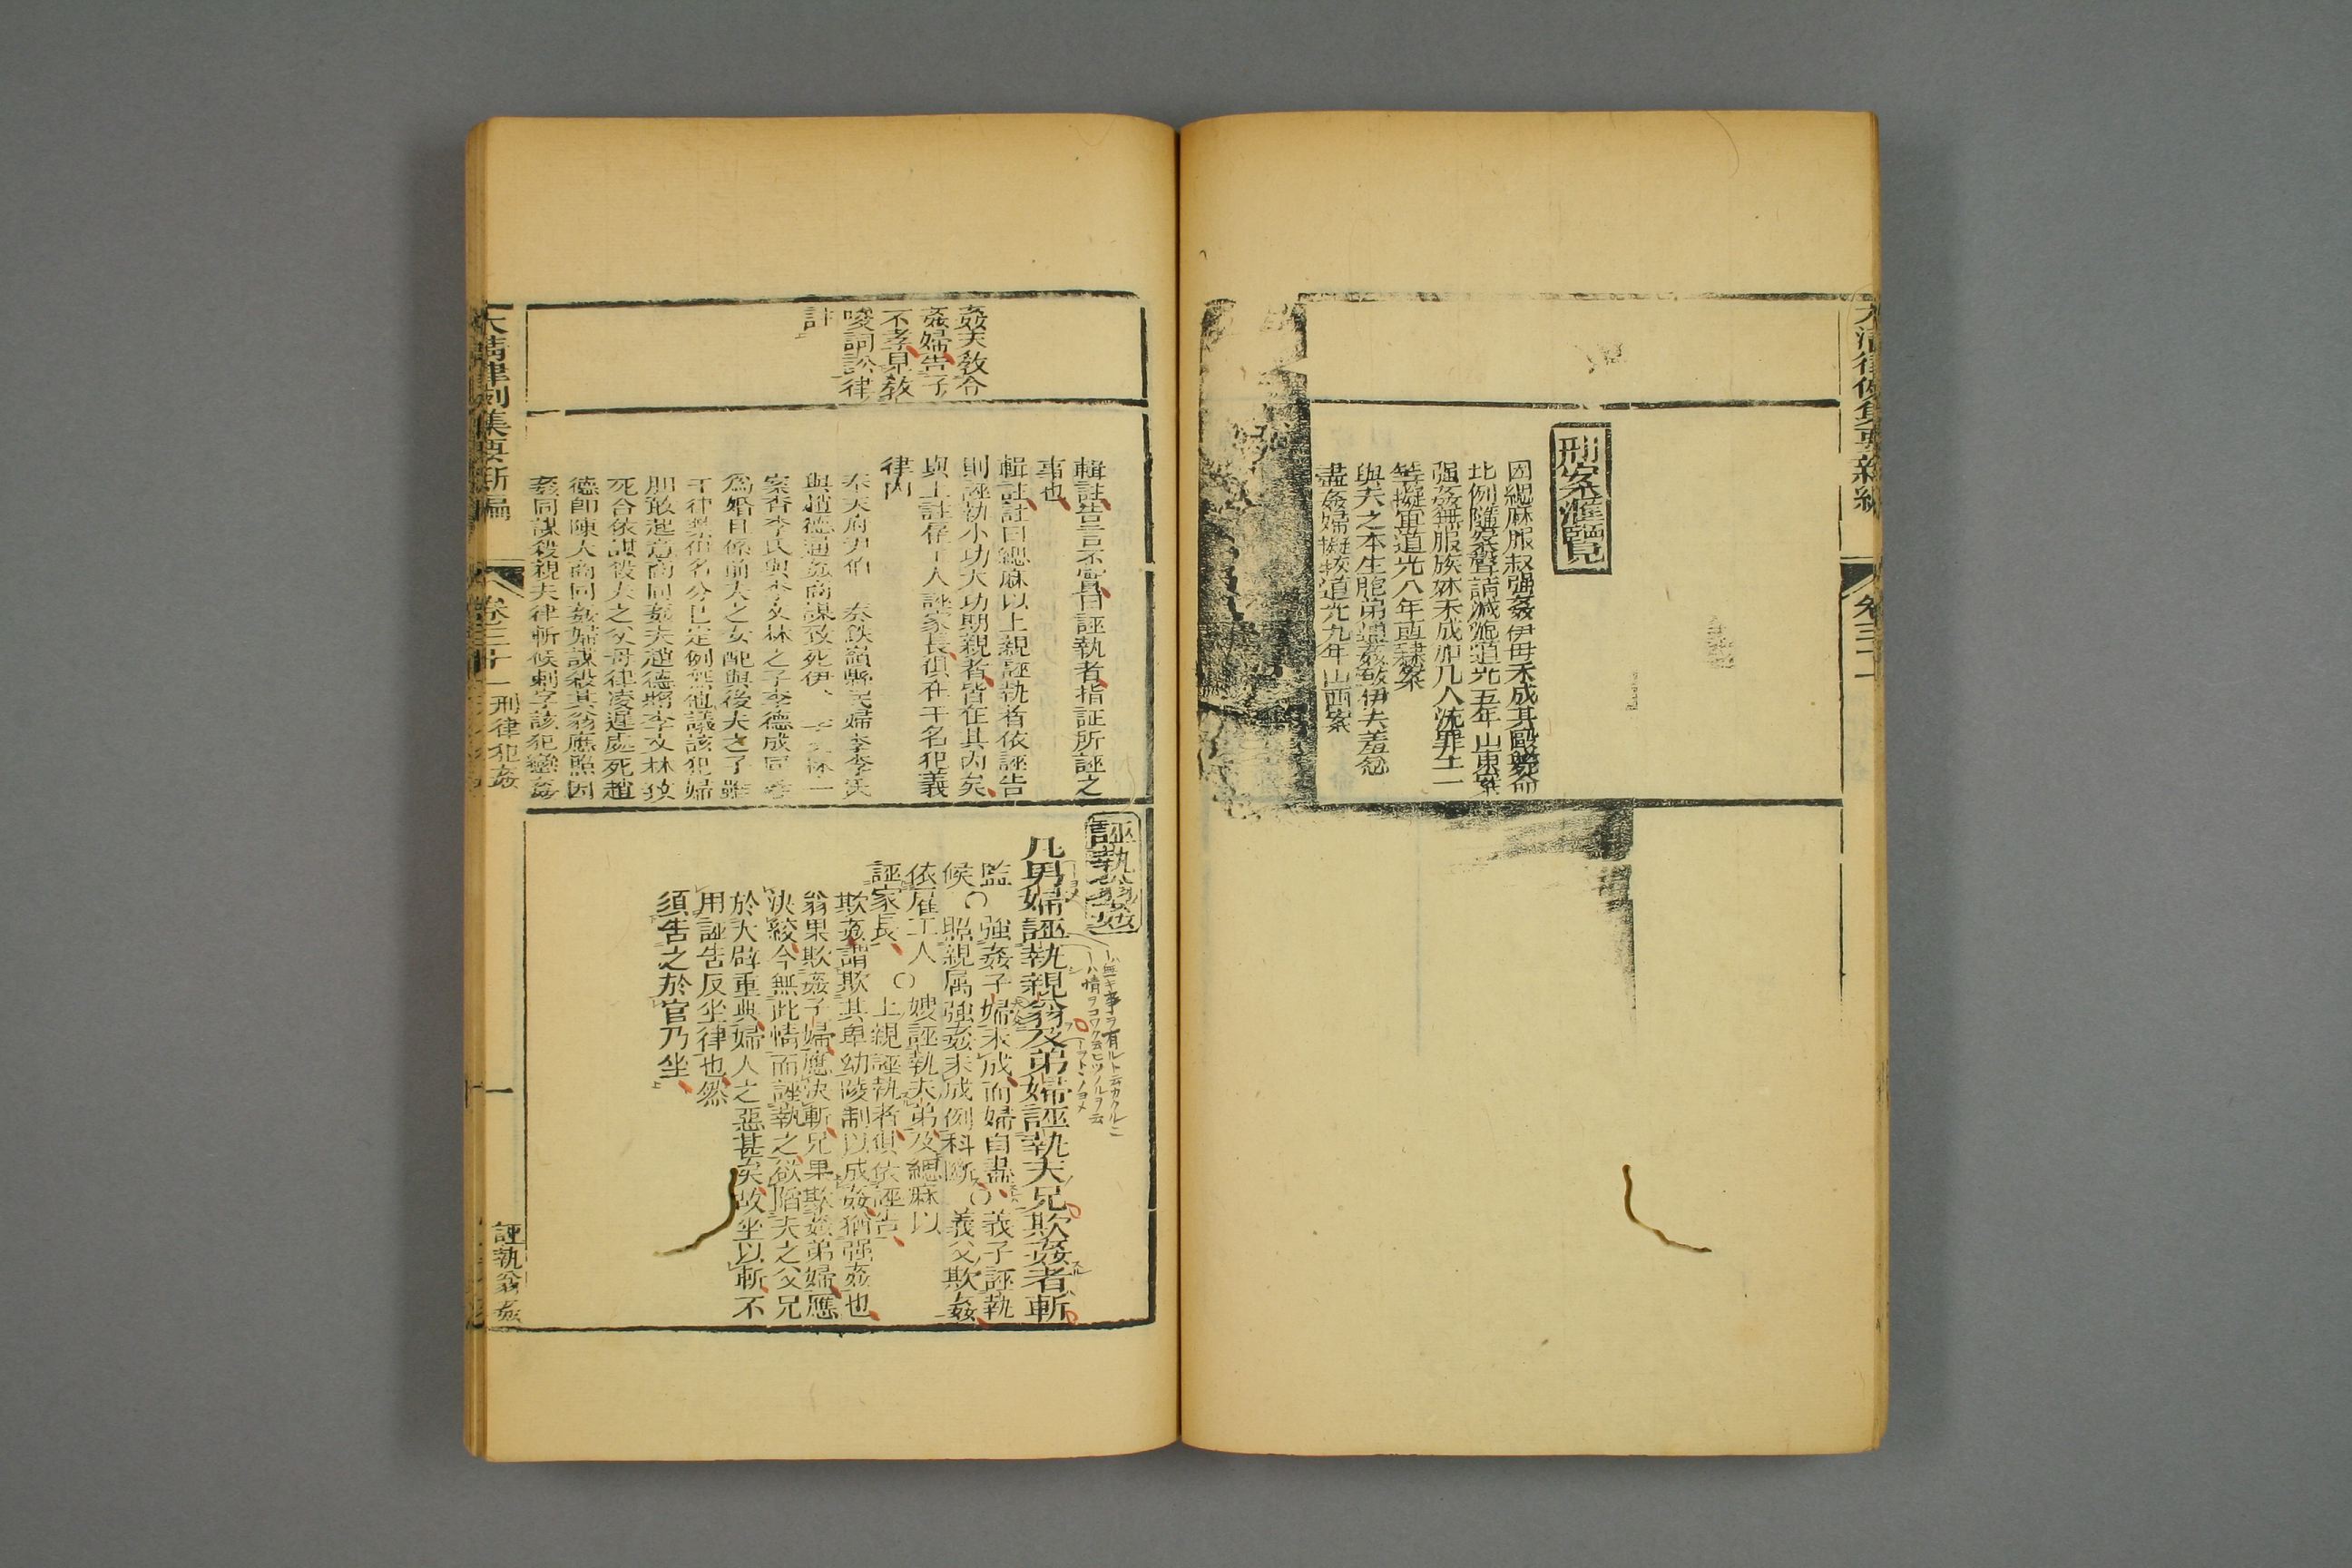 大清律例集要新編
卷三十一
刑案滙覽
因緦麻服叔强姦伊母未成其毆斃命
比例隨案聲請減㷀道光五年山東案
强姦無服族妹未成
等擬軍道光八年直隸案
與夫之本生胞弟通姦致伊夫羞忿
盡姦婦擬絞道光九年山西案
姦夫敎令
姦婦告子
不孝見敎
唆詞訟律
註
輯註告言不實曰誣執者指証所誣之
事也
輯註註曰緦麻以上親誣執者依誣告
則誣執小功大功期親者皆在其內矣
與上註雇工人誣家長俱在干名犯義
律內
奉天府尹伯 奏鉄嶺縣民婦李李氏
與趙德通姦商謀致死伊
案查李氏與李文林之子李德成同
爲婚自係前夫之女配與後夫之子雖
干律禁但名分已定例無他議該犯婦
胆敢起意商同姦夫趙德將李文林致
死合依謀殺夫之父母律凌遲處死趙
德卽陳大商同姦婦謀殺其翁應照因
姦同謀殺親夫律斬候刺字該犯戀姦
誣執翁姦
凡男婦誣執親翁及弟婦誣執夫兄欺姦者斬
監 强姦子婦未成而婦自盡〇義子誣執
候〇照親属强姦未成例科斷 義父欺姦
依雇工人〇嫂誣執夫弟及緦麻以
誣家長 〇上親誣執者俱依誣告
欺姦謂欺其卑幼陵制以成姦猶强姦也
翁果欺姦子婦應決斬兄果欺姦弟婦應
決絞今無此情而誣執之欲陷夫之父兄
於大辟重典婦人之惡甚矣故坐以斬不
用誣告反坐律也然
須告之於官乃坐
大淸律例集要新編
卷三十一 刑律犯姦
一
誣執翁姦